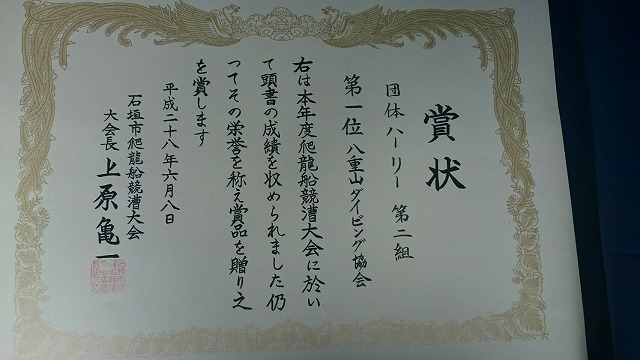 賞状
団体ハーリー 第二組
第一位 八重山ダイビング協会
右は本年度爬龍船競漕大会に於い
て頭書の成績を収められました仍
ってその栄誉を称え賞品を贈り之
を賞します
平成二十八年六月八日
石垣市爬龍船競漕大会
大会長 上原亀一